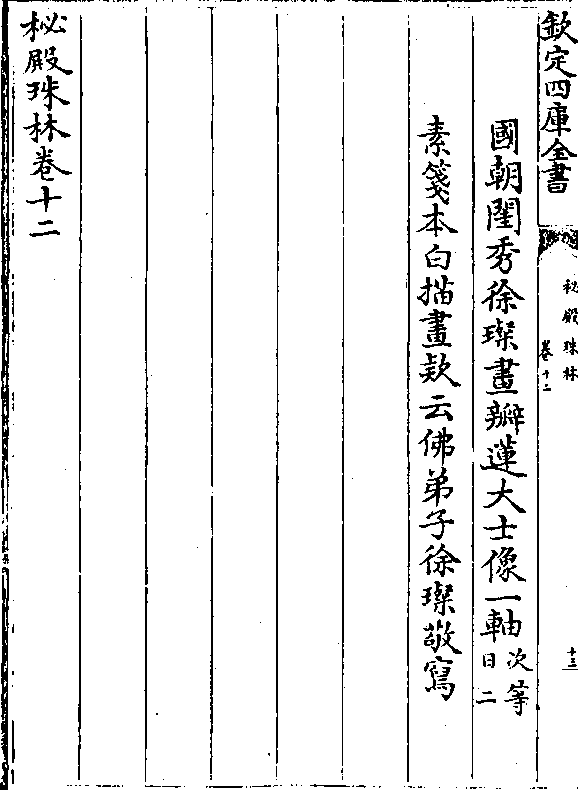 欽定四庫全書
秘殿珠林
卷十二
十三
國朝閨秀徐璨畫瓣蓮大士像一軸次等
日二
素箋本白描畫款云佛弟子徐璨敬寫
秘殿珠林卷十二